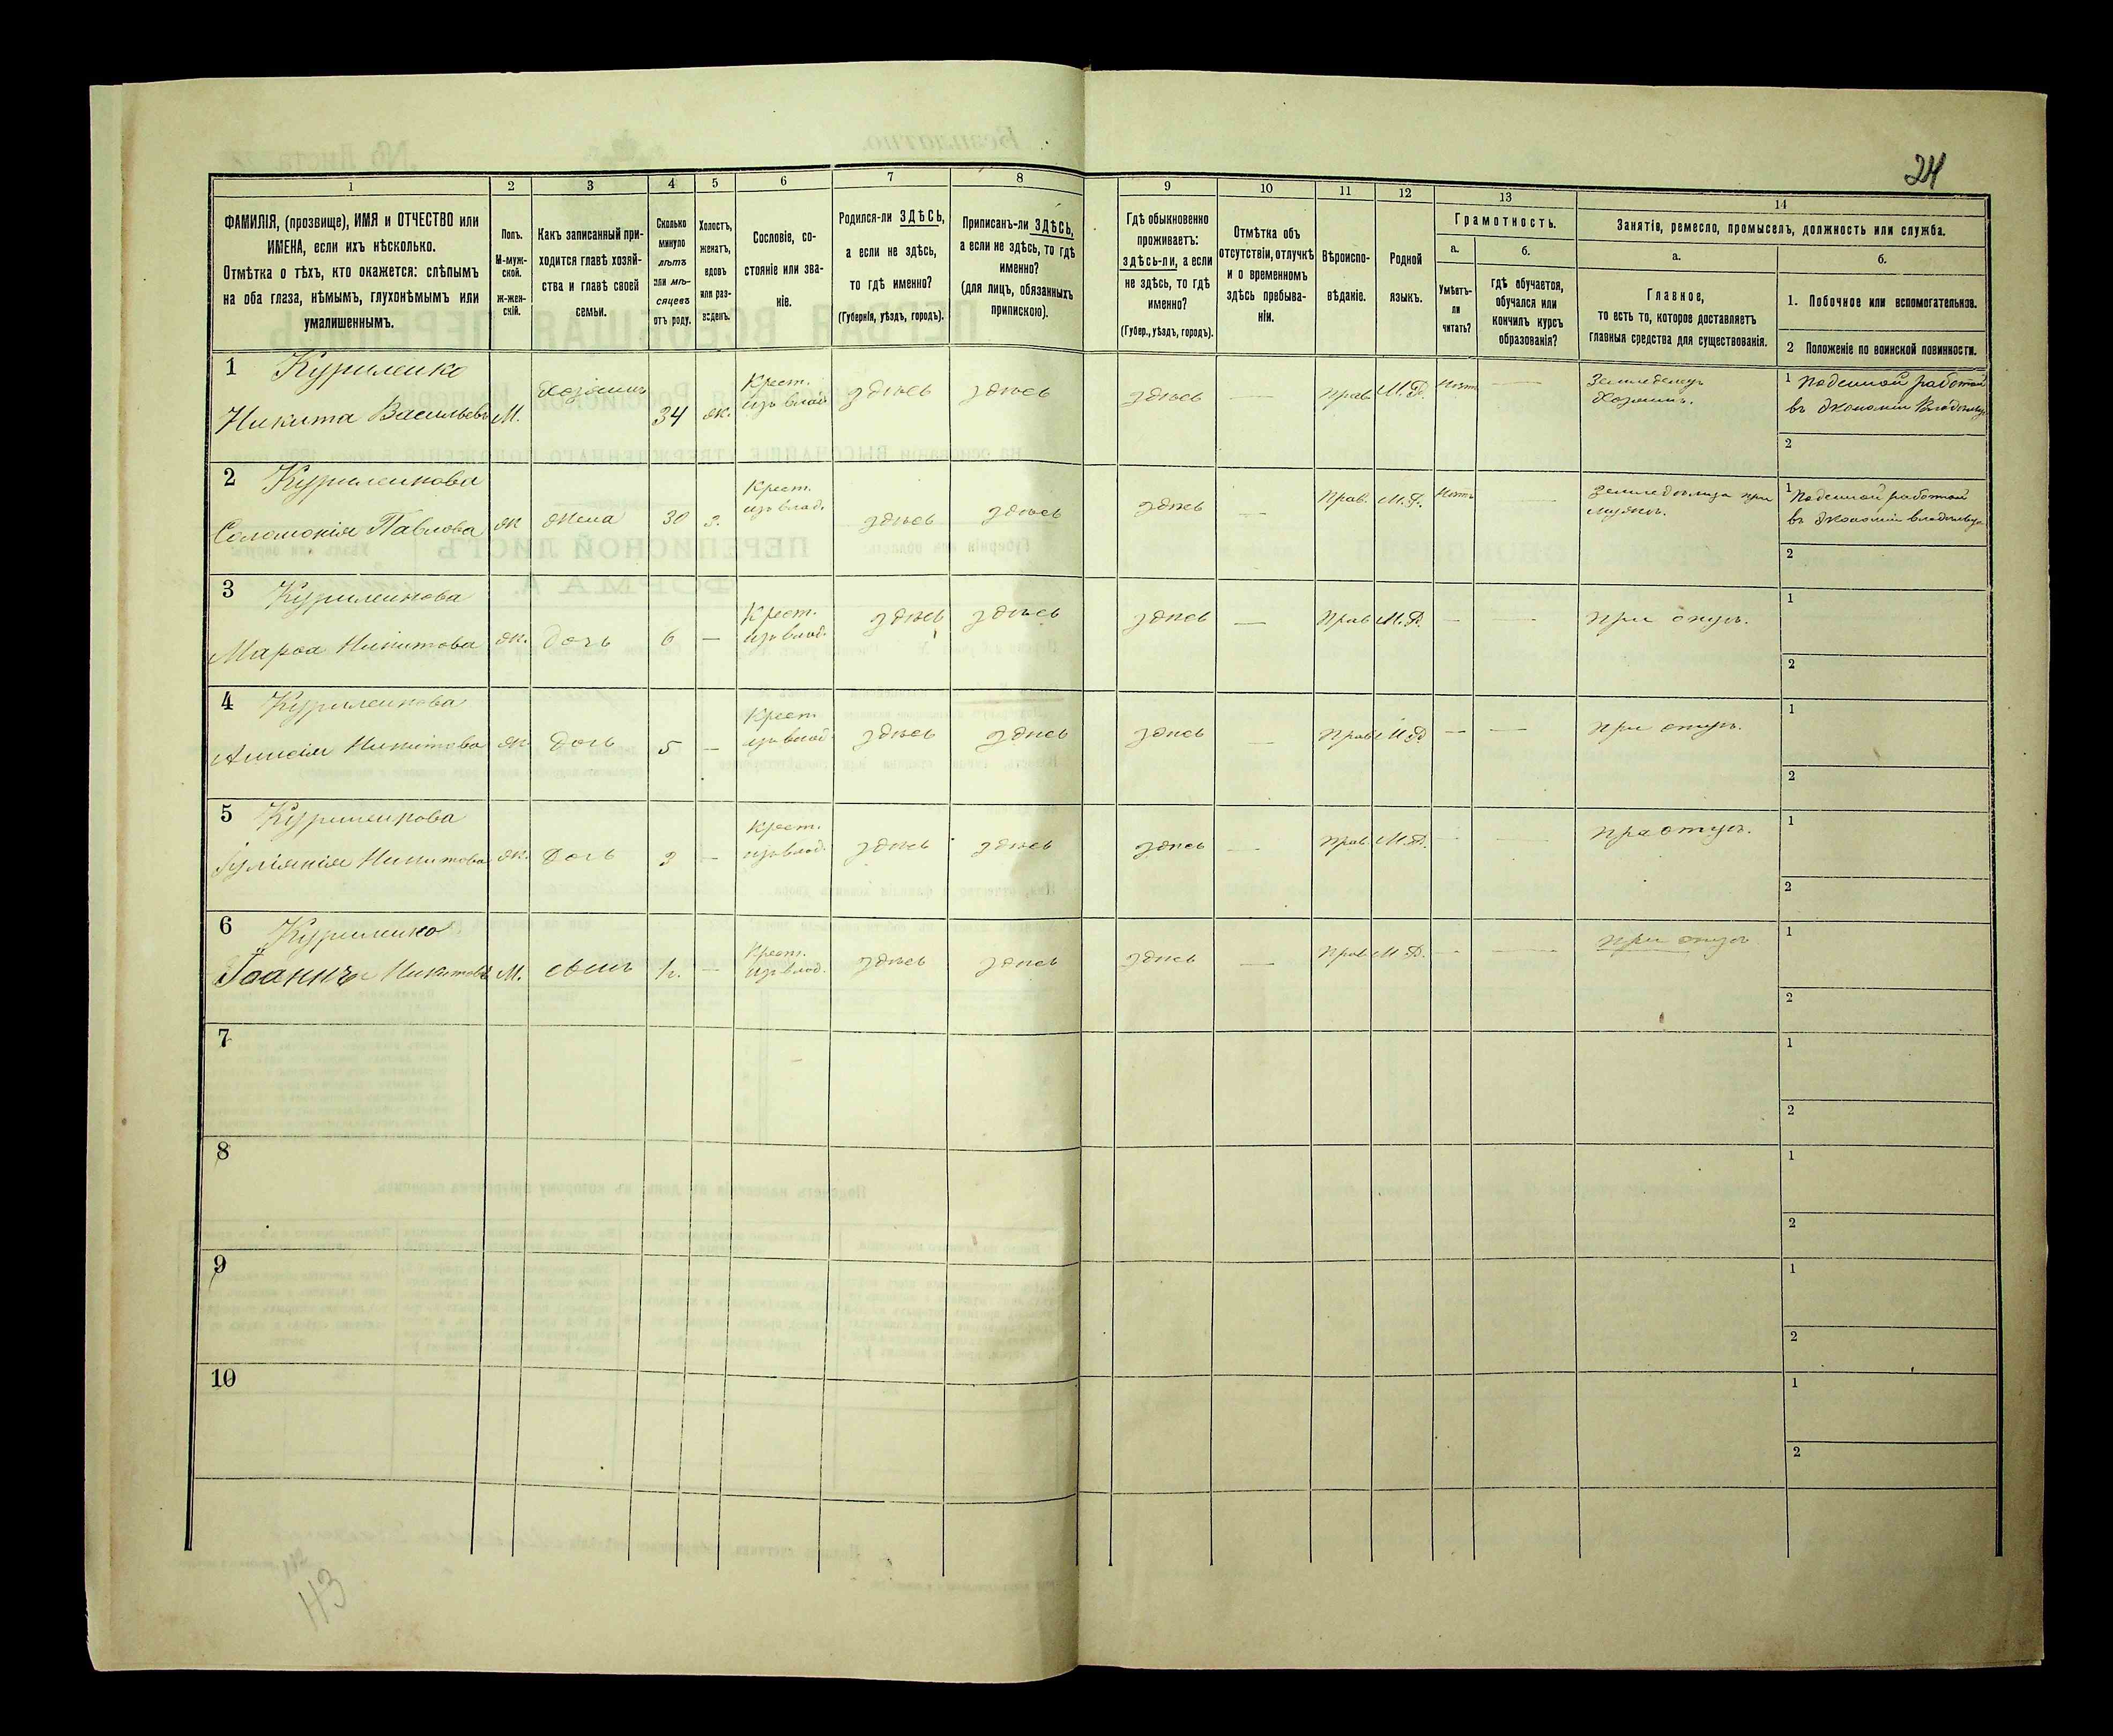 24
1
2
3
4
5
6
7
8
9
10
11
12
13
14
ФАМИЛІЯ, (прозвище), ИМЯ и ОТЧЕСТВО или
ИМЕНА, если ихъ нѣсколько.
Отмѣтка о тѣхъ, кто окажется: слѣпымъ
на оба глаза, нѣмымъ, глухонѣмымъ или
умалишеннымъ.
Полъ.
М-муж-
ской.
ж-жен-
скій.
Какъ записанный при-
ходится главѣ хозяй-
ства и главѣ своей
семьи.
Сколько
минуло
лѣтъ
или мѣ-
сяцевъ
отъ роду.
Холостъ,
женатъ,
вдовъ
или раз-
веденъ.
Сословіе, со-
стояніе или зва-
ніе.
Родился-ли ЗДѢСЬ,
а если не здѣсь,
то гдѣ именно?
(Губернія, уѣздъ, городъ).
Приписанъ-ли ЗДѢСЬ,
а если не здѣсь, то гдѣ
именно?
(для лицъ, обязанныхъ
припискою).
Гдѣ обыкновенно
проживаетъ:
здѣсь-ли, а если
не здѣсь, то гдѣ
именно?
(Губер., уѣздъ, городъ).
Отмѣтка объ
отсутствіи, отлучкѣ
и о временномъ
здѣсь пребыва-
ніи.
Вѣроиспо-
вѣданіе.
Родной
языкъ.
Грамотность.
а.
б.
Умѣетъ-
ли
читать?
гдѣ обучается,
обучался или
кончилъ курсъ
образованія?
Занятія, ремесло, промыселъ, должность или служба.
а.
б.
Главное,
то есть то, которое доставляетъ
главныя средства для существованія.
1. Побочное или вспомогательное.
2 Положеніе по воинской повинности.
1 Куриленко
Никита Васильевъ М. Хозяинъ 34 ж. Крест.
изъ влад. здѣсь здѣсь здѣсь — Прав. М.Р. Нѣтъ — Земледелецъ
Хозяинъ.
1 Поденной работой
въ экономіи Владѣльца
2
2 Куриленкова
Соломонія Павлова ж жена 30 з. Крест.
изъ влад. здѣсь здѣсь здѣсь — Прав. М.Р. Нѣтъ — земледѣлица при
мужѣ.
1 Поденной работой
въ экономіи владѣльца
2
3 Куриленкова
Марѳа Никитова ж. дочь 6 — Крест.
изъ влад. здѣсь здѣсь здѣсь — Прав М.Р. — — при отцѣ.
1
2
4 Куриленкова
Никитова ж. дочь 5 — Крест.
изъ влад. здѣсь здѣсь здѣсь — Прав М.Р — — при отцѣ.
1
2
5 Куриленкова
Іуліянія Никитова ж. Дочь 3 — Крест.
изъ влад. здѣсь здѣсь здѣсь — Прав. М.Р. — — при отцѣ.
1
2
6 Куриленко
Іоаннъ Никитовъ М. сынъ 1 г. — Крест.
изъ влад. здѣсь здѣсь здѣсь — Прав М.Р. — — при отцѣ
1
2
7
1
2
8
1
2
9
1
2
10
1
2
113